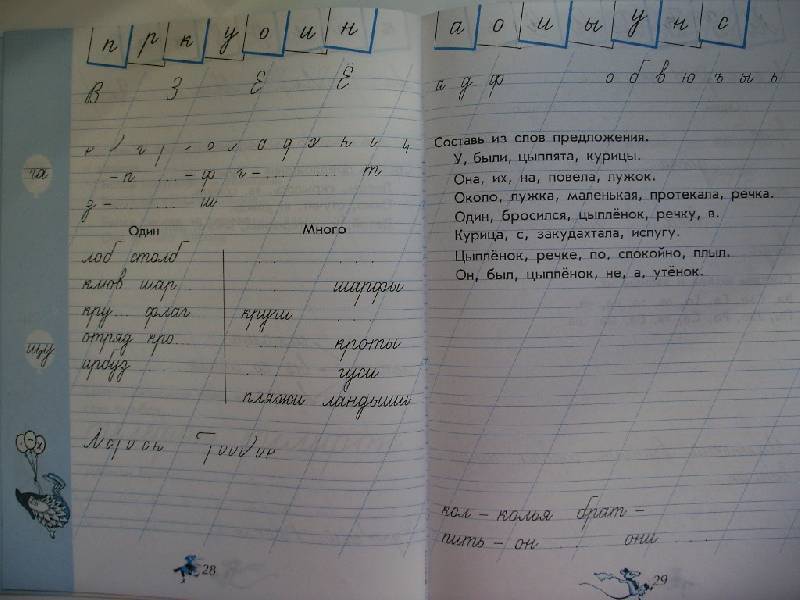 п р к у о и н
В З Е Ё
- п - ф г - т
з - ш
ча
Один Много
лоб столб
клюв шар шарфы
кру флаг круги
отряд кро кроты
арбуз гуси
пляжи ландыши
щу
28
а о и ы у н с
а д ф о б в ю ъ ы ь
Составь из слов предложения.
У, были, цыплята, курицы.
Она, их, на, повела, лужок.
Около, лужка, маленькая, протекала, речка.
Один, бросился, цыплёнок, речку, в.
Курица, с, закудахтала, испугу.
Цыплёнок, речке, по, спокойно, плыл.
Он, был, цыплёнок, не, а, утёнок.
кол - колья брат -
пить - он они
29